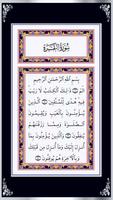 سورة البقرة
بسم الله الرحمن الرحيم
الم ذلك الكتاب لا ريب
فيه هدى للمتقين
الذين يؤمنون بالغيب
ويقيمون الصلاة ومما رزقناهم
ينفقون والذين يؤمنون
بما أنزل إليك وما أنزل من قبلك
وبالآخرة هم يوقنون